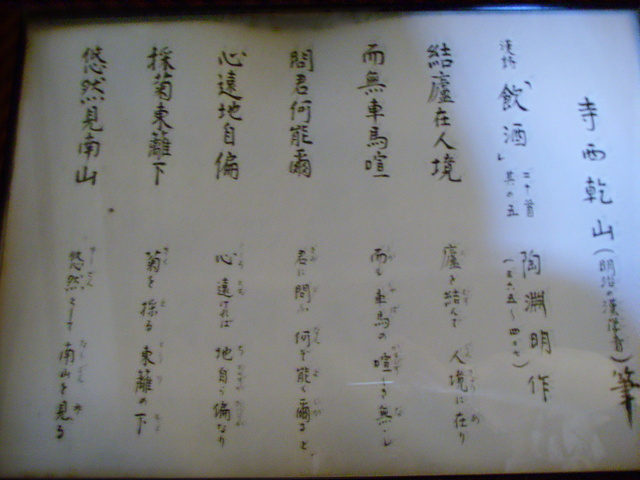 寺西乾山(明治の漢学者)筆
漢詩「飲酒」二十首 其の五 陶淵明作(三六五〜四二七)
結廬在人境 廬を結んで 人境に在り
而無車馬喧 而も車馬の 喧しき無し
問君何能爾 君に問ふ 何ぞ能く爾ると
心遠地自偏 心遠ければ 地自ら偏なり
採菊東籬下 菊を採る 東籬の下
悠然見南山 悠然として 南山を見る